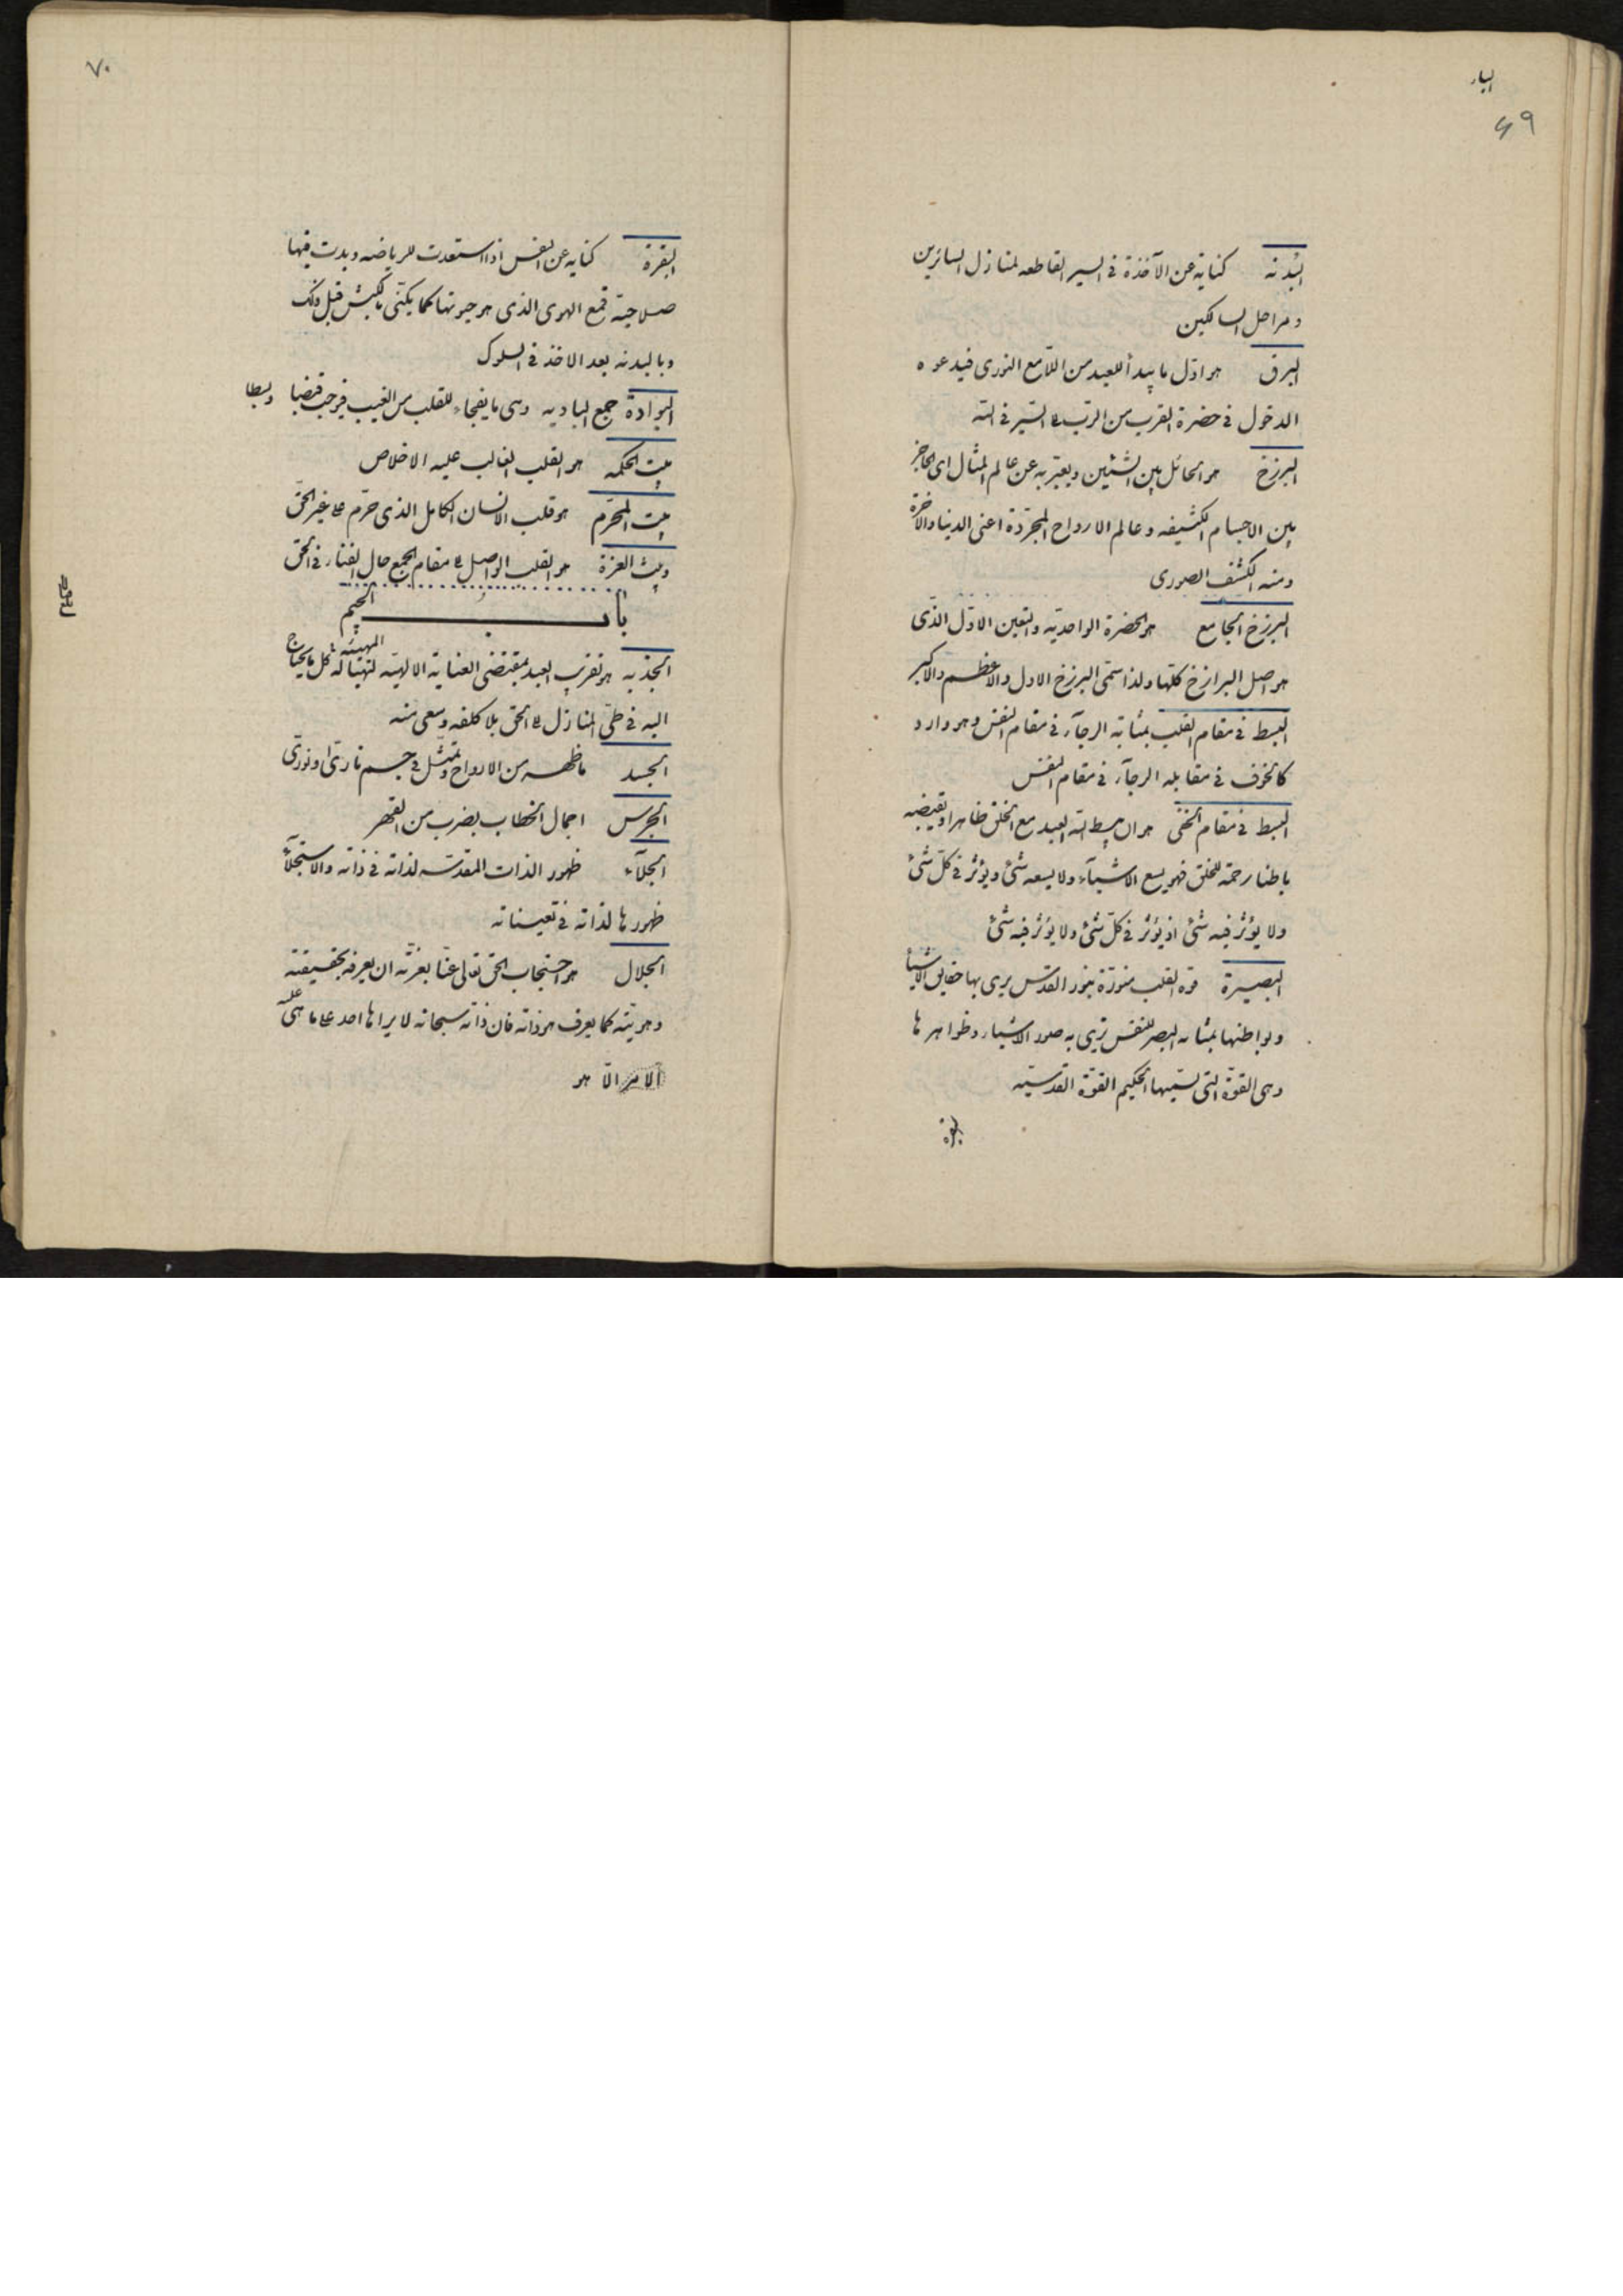 الباء
٦٩
البُدنه كناية عن الآخذة فى السير القاطعه لمنازل السائرين
ومراحل السالكين
البرق هو اوّل ما يبدأ للعبد من اللّامع النورى فيدعوه
الدخول فى حضرة القرب من الربّ للسّير فى اللّه
البرزخ هو الحائل بين الشئين ويعبّر به عن عالم المثال اى الحاجز
بين الاجسام الكثيفه وعالم الارواح المجرّدة اعنى الدنيا والآخرة
ومنه الكشف الصورى
البرزخ الجامع هو الحضرة الواحديّه والتعين الاوّل الذّى
هو اصل البرازخ كلّها ولذا سمّى البرزخ الاول والاعظم والاكبر
البسط فى مقام القلب بمثابة الرجآء فى مقام النفس وهو وارد
كالخوف فى مقابله الرجآء فى مقام النفس
البسط فى مقام الخفّى هو ان يبسط اللّه العبد مع الخلق ظاهرا ويقبضه
باطنا رحمة للخلق فهو يسع الاشيآء ولا يسعه شئ ويؤثر فى كلّ شئ
ولا يؤثر فيه شئ اذ يؤثر فى كلّ شئ ولا يؤثر فيه شئ
البصيرة قوه القلب منوّرة بنور القدس يرى بها حقايق الاشياء
وبواطنها بمثابه البصر للنفس ترى به صور الاشياء وظواهرها
وهى القوّة التى يسمّيها الحكيم القوّة القدسيّه
البقرة
٧٠
البقرة كنايه عن النفس اذا استعدت للرياضه وبدت فيها
صلاحيّة قمع الهوى الذى هو حيوتها كما يكنّى بالكبش قبل ذلك
وبالبدنه بعد الاخذ فى السلوك
البوادة جمع الباديه وهى ما يفجاء للقلب من الغيب فيوجب قبضا وبسطا
بيت الحكمه هو القلب الغالب عليه الاخلاص
بيت المحرّم هو قلب الانسان الكامل الذى حرّم على غير الحقّ
وبيت العزة هو القلب الواصل الى مقام الجمع حال الفناء فى الحق
باب الجيم
الجذبه هو تقريب العبد بمقتضى العناية الالهيّه المهيئة له كل ما يحتاج
اليه فى طىّ المنازل الى الحق بلا كلفه وسعى منه
الجسد ما ظهر من الارواح وتمثّل فى جسم نارىّ او نورىّ
الجرس اجمال الخطاب بضرب من القهر
الجلآء ظهور الذات المقدسّه لذاته فى ذاته والاستجلآء
ظهورها لذاته فى تعيناته
الجلال هو احتجاب الحق تعالى عنّا بعزّته ان يعرفه بحقيقته
وهويته كما يعرف هو ذاته فان ذاته سبحانه لا يراها احد على ما هى عليه
الّا هو